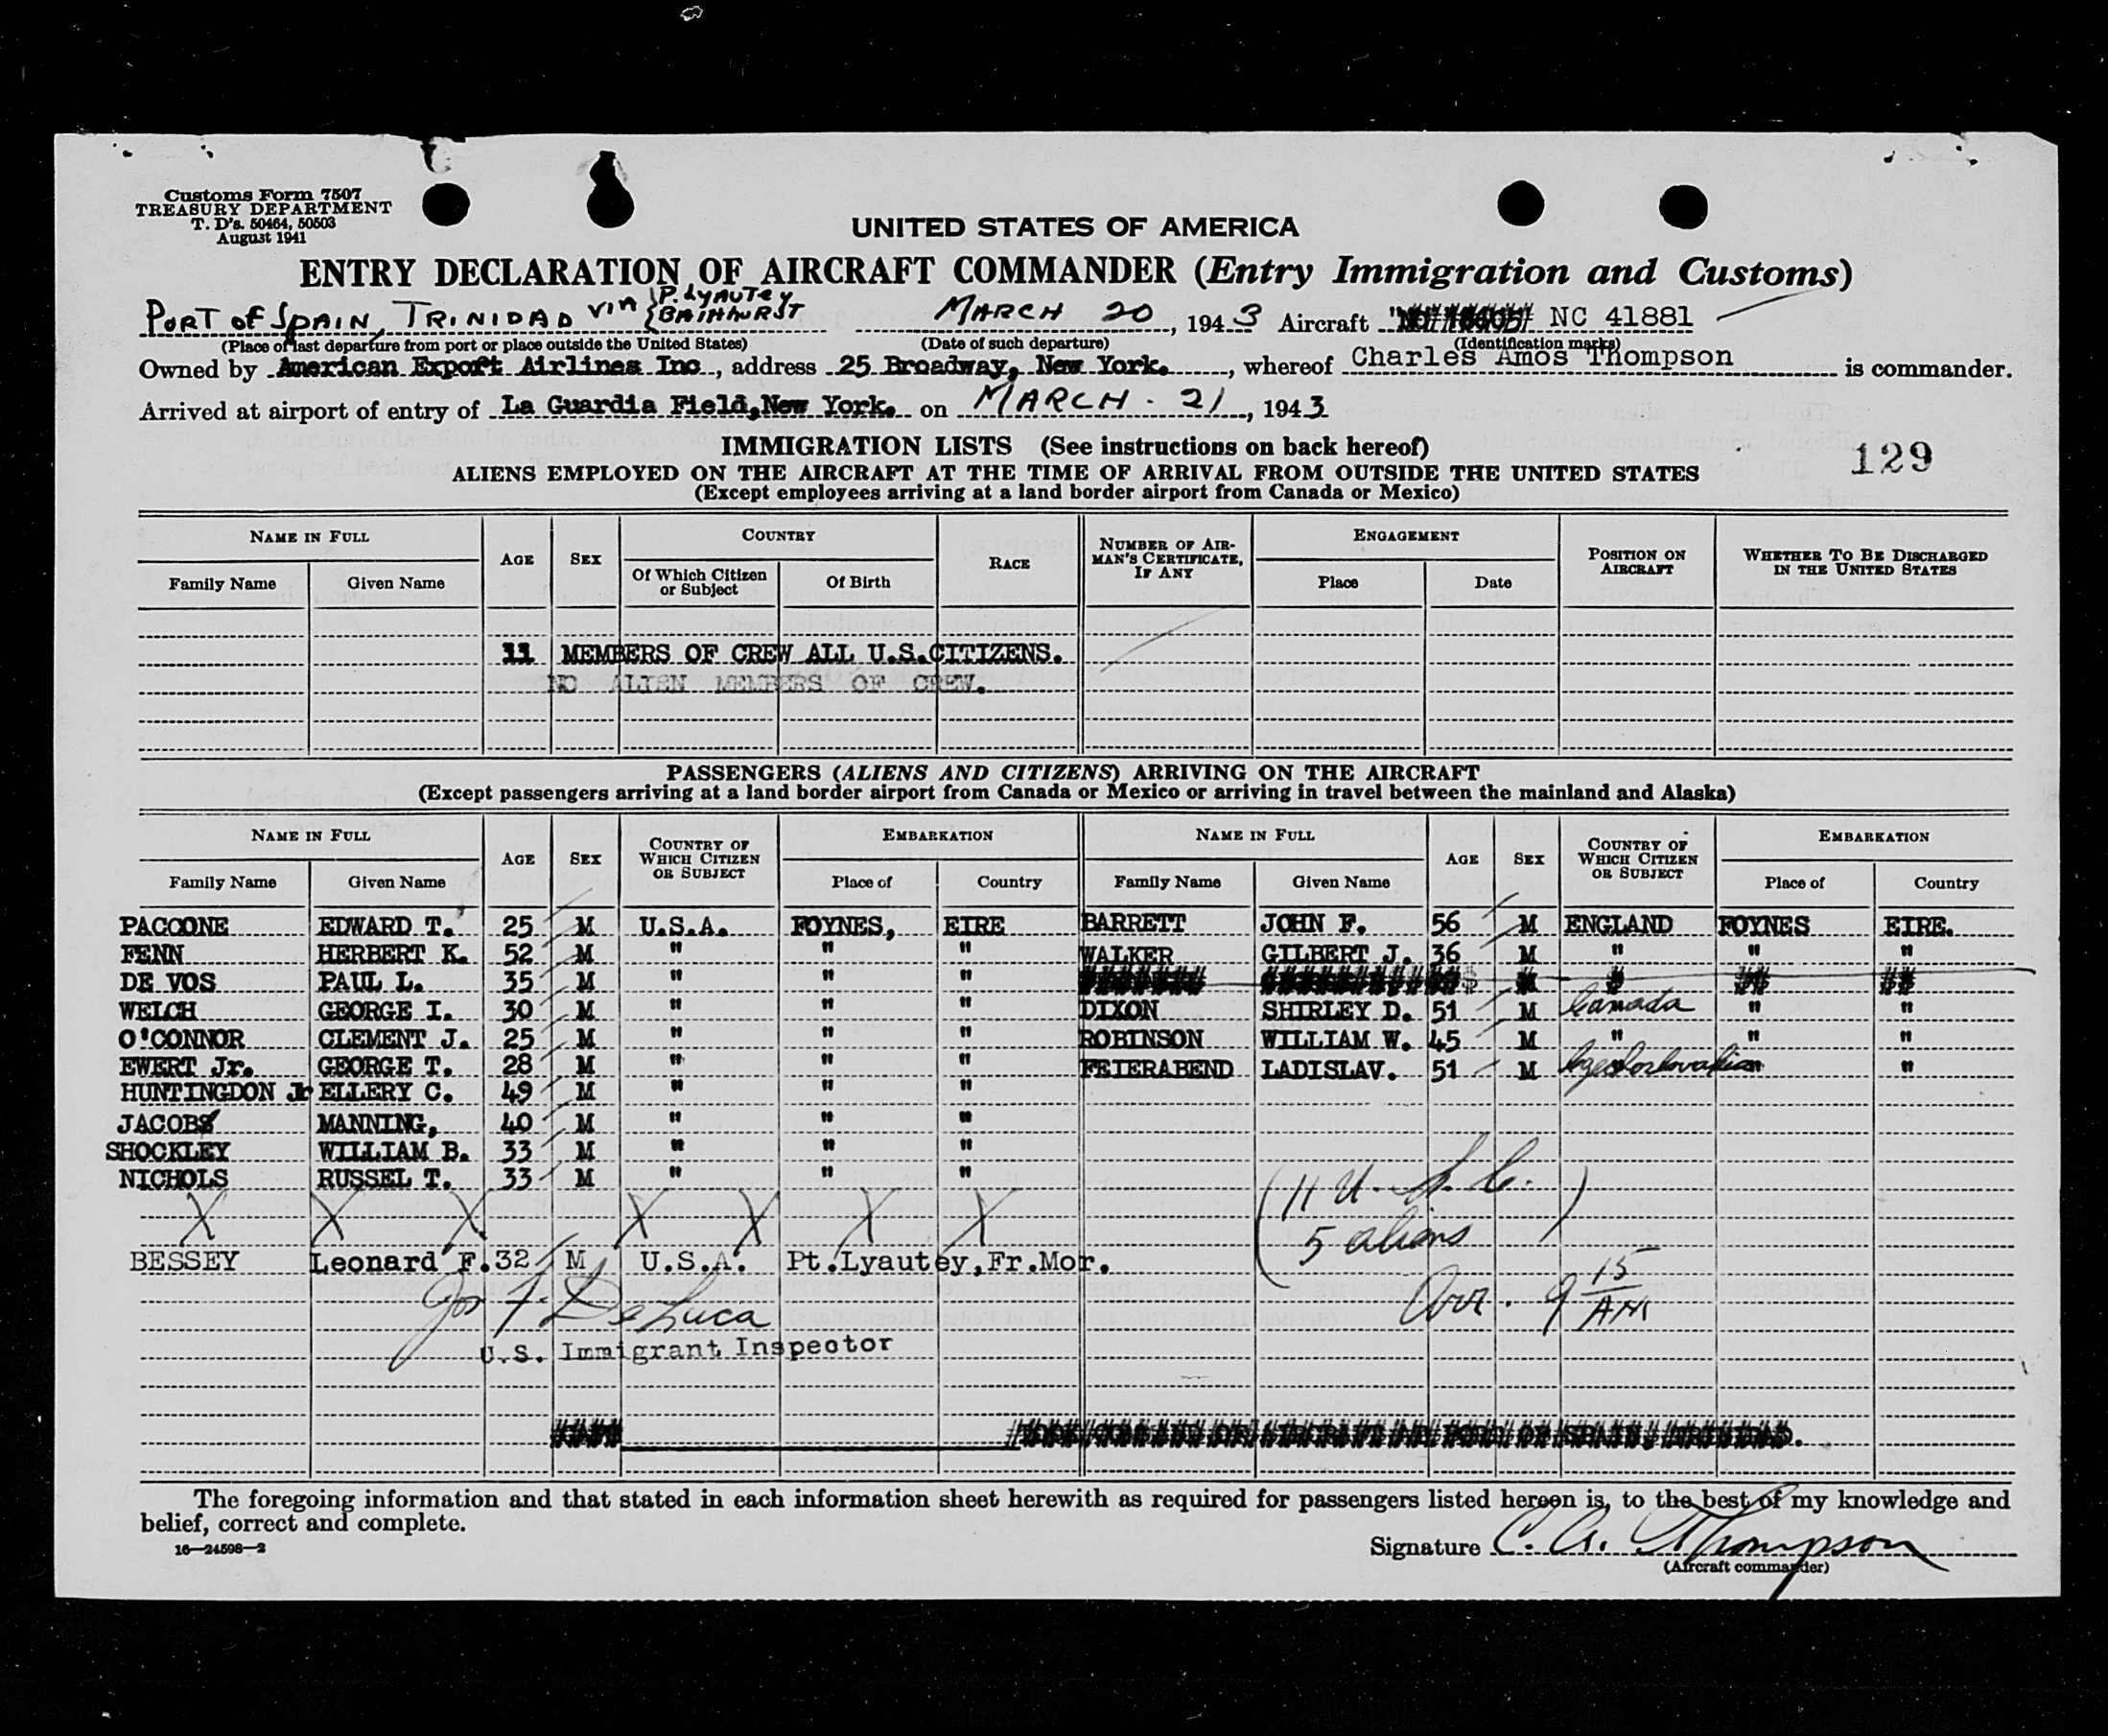 Customs Form 7507
TREASURY DEPARTMENT
T. D's. 50464, 50503
August 1941
UNITED STATES OF AMERICA
ENTRY DECLARATION OF AIRCRAFT COMMANDER (Entry Immigration and Customs)
PORT OF SPAIN, TRINIDAD VIA { P. LYAUTEY BATHURST MARCH 20, 1943 Aircraft NC 41881
(Place of last departure from port or place outside the United States) (Date of such departure) (Identification marks)
Owned by American Export Airlines Inc, address 25 Broadway, New York., whereof Charles Amos Thompson is commander.
Arrived at airport of entry of La Guardia Field, New York. on MARCH - 21, 1943
IMMIGRATION LISTS (See instructions on back hereof)
129
ALIENS EMPLOYED ON THE AIRCRAFT AT THE TIME OF ARRIVAL FROM OUTSIDE THE UNITED STATES
(Except employees arriving at a land border airport from Canada or Mexico)
NAME IN FULL AGE SEX COUNTRY RACE NUMBER OF AIRMAN'S CERTIFICATE, IF ANY ENGAGEMENT POSITION ON AIRCRAFT WHETHER TO BE DISCHARGED IN THE UNITED STATES
Family Name Given Name Of Which Citizen or Subject Of Birth Place Date
11 MEMBERS OF CREW ALL U.S.CITIZENS.
NO ALIEN MEMBERS OF CREW.
PASSENGERS (ALIENS AND CITIZENS) ARRIVING ON THE AIRCRAFT
(Except passengers arriving at a land border airport from Canada or Mexico or arriving in travel between the mainland and Alaska)
NAME IN FULL AGE SEX COUNTRY OF WHICH CITIZEN OR SUBJECT EMBARKATION NAME IN FULL AGE SEX COUNTRY OF WHICH CITIZEN OR SUBJECT EMBARKATION
Family Name Given Name Place of Country Family Name Given Name Place of Country
PACCONE EDWARD T. 25 M U.S.A. FOYNES, EIRE BARRETT JOHN F. 56 M ENGLAND FOYNES EIRE.
FENN HERBERT K. 52 M " " " WALKER GILBERT J. 36 M " " "
DE VOS PAUL L. 35 M " " "
WELCH GEORGE I. 30 M " " " DIXON SHIRLEY D. 51 M Canada " "
O'CONNOR CLEMENT J. 25 M " " " ROBINSON WILLIAM W. 45 M " " "
EWERT Jr. GEORGE T. 28 M " " " FEIERABEND LADISLAV. 51 M Czechoslovakian "
HUNTINGDON Jr ELLERY C. 49 M " " "
JACOBS MANNING, 40 M " " "
SHOCKLEY WILLIAM B. 33 M " " "
NICHOLS RUSSEL T. 33 M " " "
X X X X X X X
(11 U.S.C.
5 aliens)
BESSEY Leonard F. 32 M U.S.A. Pt.Lyautey,Fr.Mor.
Jos F. DeLuca
Arr. 9 15 AM
U.S. Immigrant Inspector
The foregoing information and that stated in each information sheet herewith as required for passengers listed hereon is, to the best of my knowledge and
belief, correct and complete.
16—24598-2
Signature C. A. Thompson
(Aircraft commander)